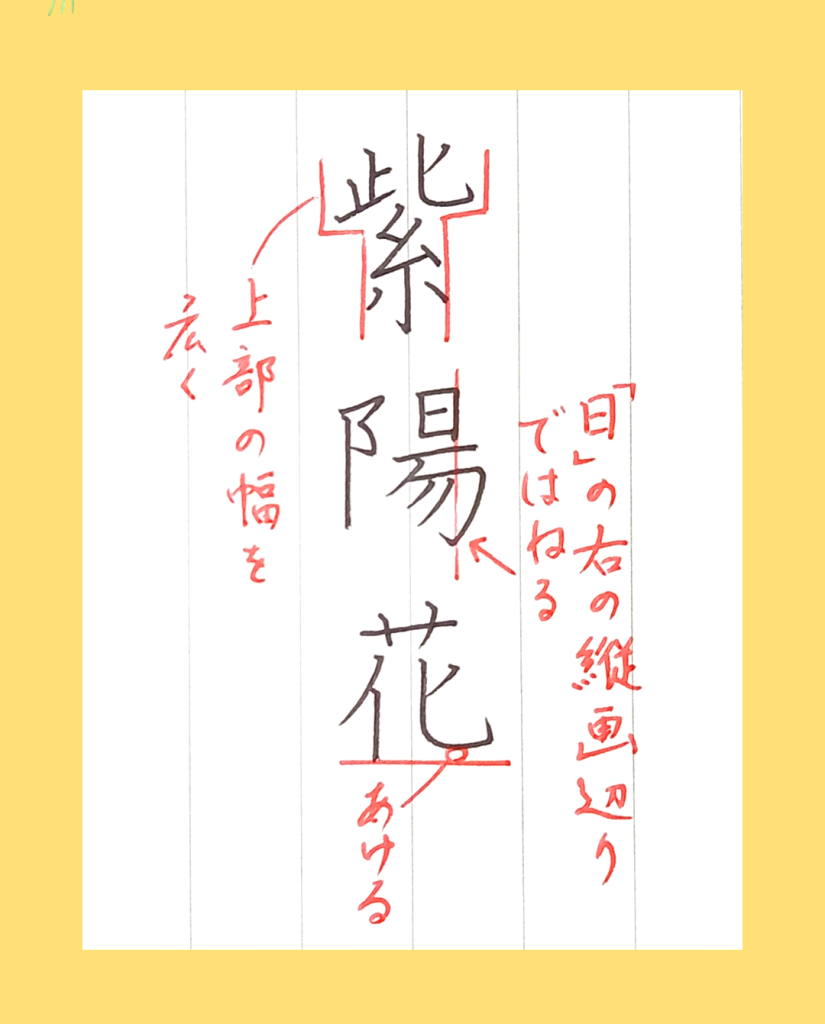 紫陽花
「日」の右の縦画辺り
ではねる
上部の幅を
広く
あける